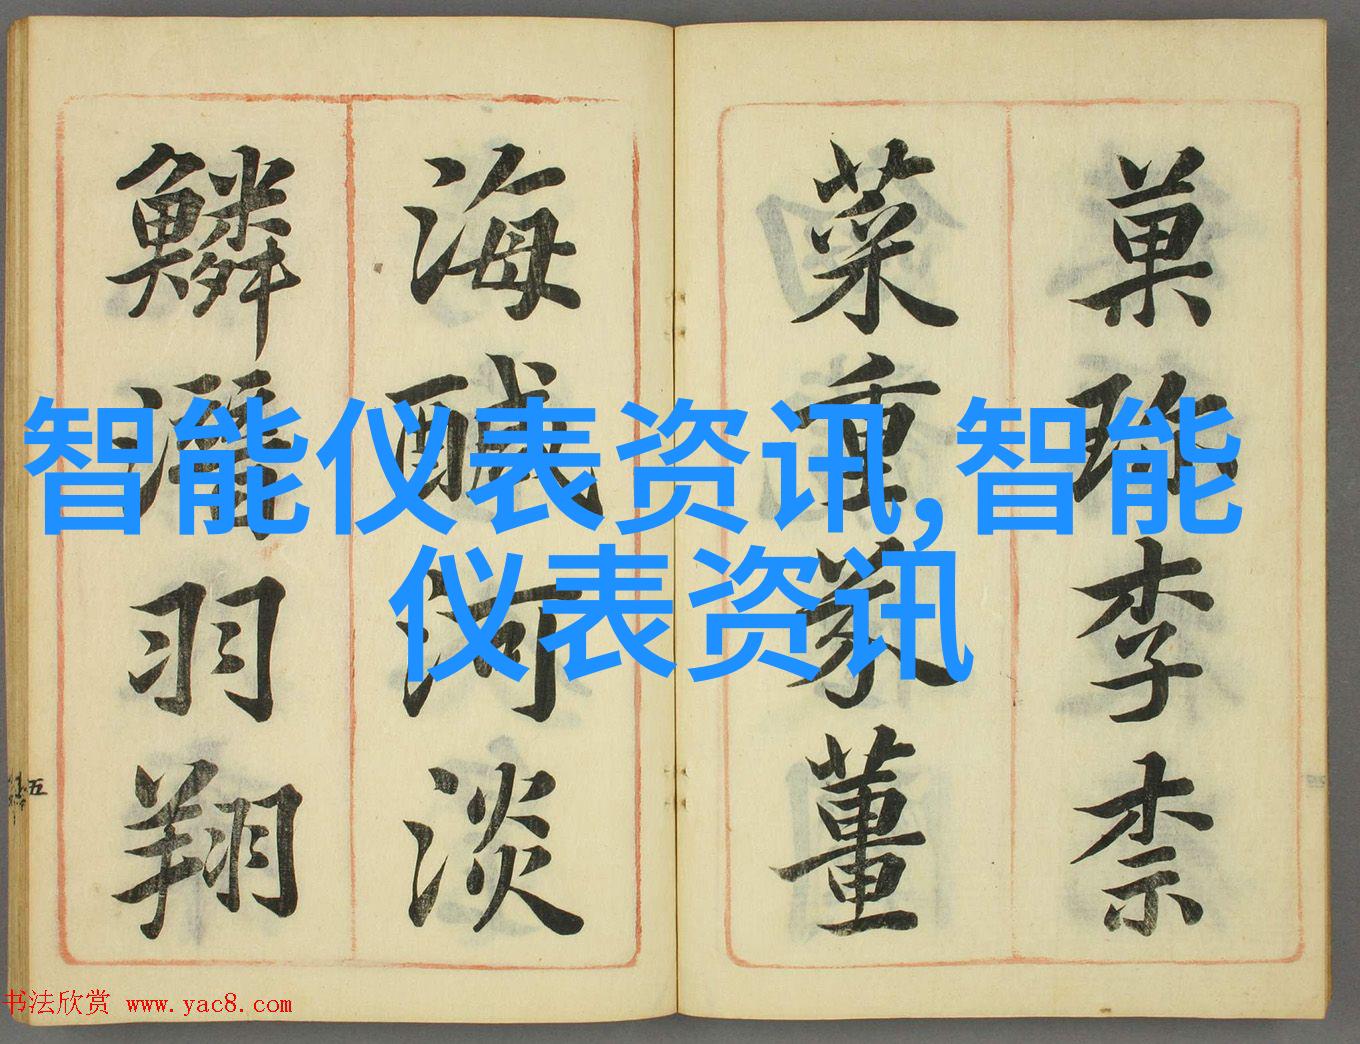 智能仪表资讯,智能
仪表资讯
菓珎李柰
菜重芥薑
海醎河淡
鱗潛羽翔
五
书法欣赏 www.yac8.com